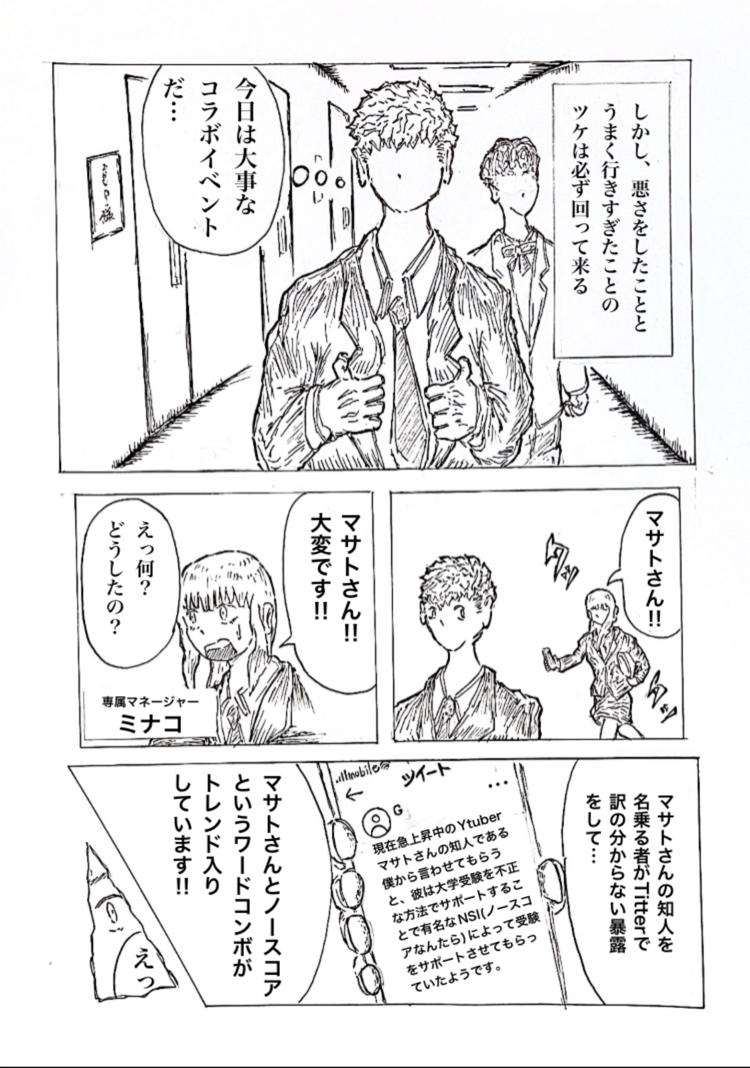 しかし、悪さをしたことと
うまく行きすぎたことの
ツケは必ず回って来る
今日は大事な
コラボイベント
だ…
様
マサトさん!!
タッ
タッ
マサトさん!!
大変です!!
えっ何?
どうしたの?
専属マネージャー
ミナコ
マサトさんの知人を
名乗る者がTitterで
訳の分からない暴露
をして…
mobile
ツイート
←
…
G
現在急上昇中のYtuber
マサトさんの知人である
僕から言わせてもらう
と、彼は大学受験を不正
な方法でサポートするこ
とで有名なNSI(ノースコ
アなんたら)によって受験
をサポートさせてもらっ
ていたようです。
マサトさんとノースコア
というワードコンボが
トレンド入り
しています!!
えっ